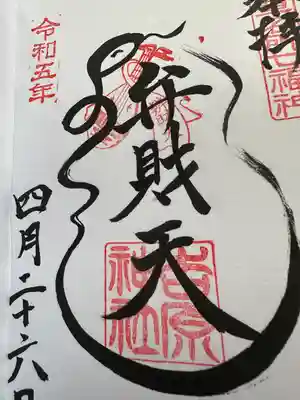 奉拝
弁財天
吉原
神社
令和五年
四月二十六日